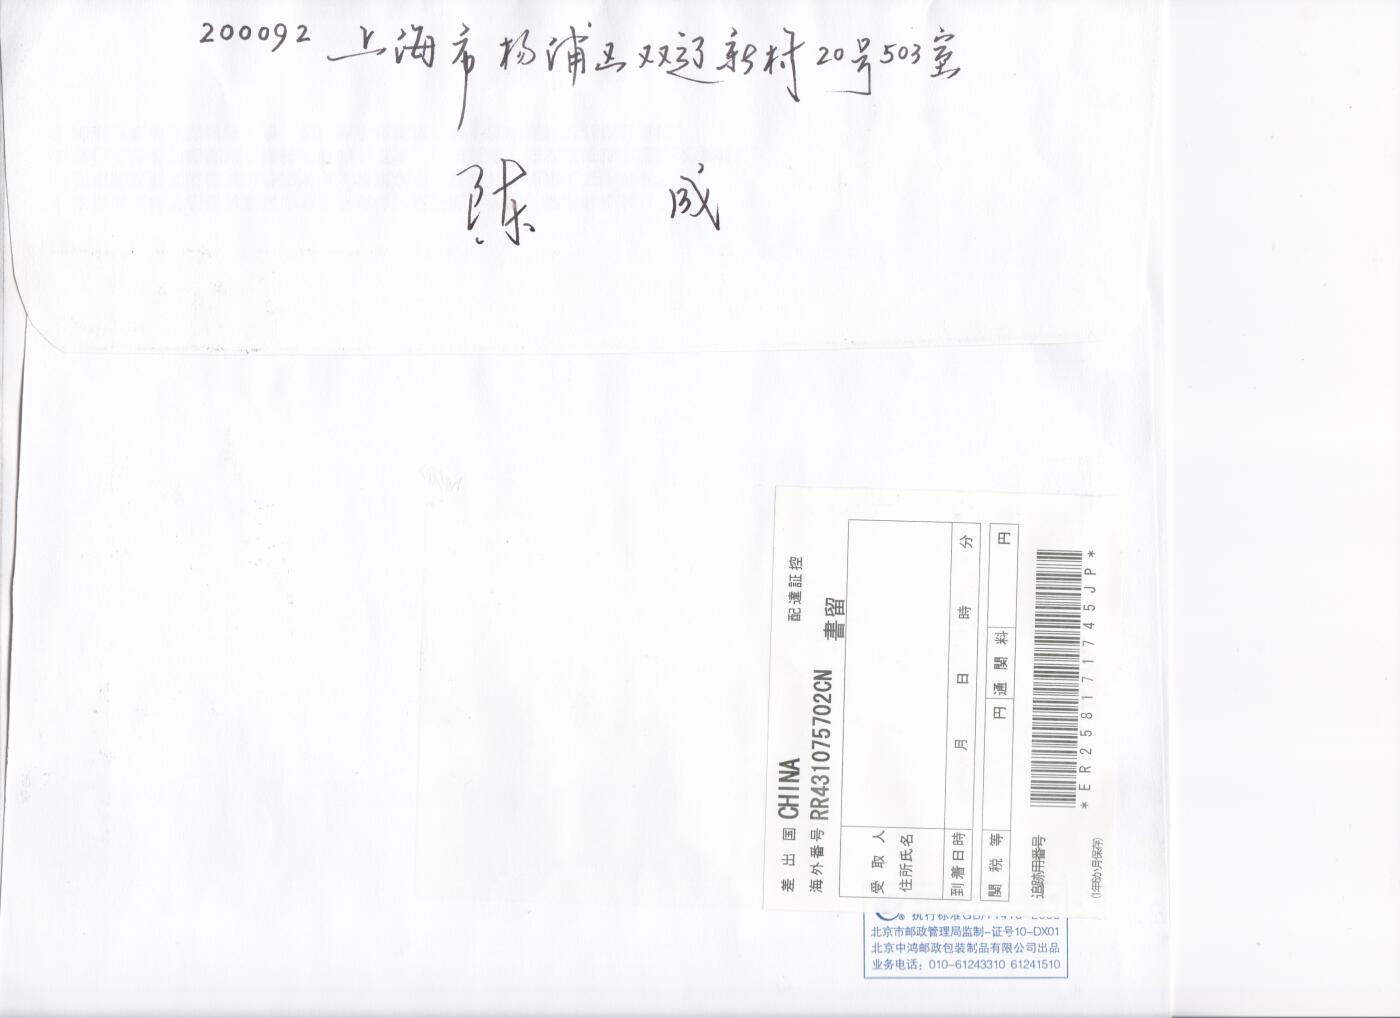 200092 上海市杨浦区双辽新村20号503室
陈 成
差出国 CHINA 配達証控
海外番号 RR431075702CN 書留
受取人
住所氏名
到着日時 月 日 時 分
関税等 円 通関料 円
追跡用番号
*ER258171745JP*
(1年6か月保存)
北京市邮政管理局监制-证号10-DX01
北京中鸿邮政包装制品有限公司出品
业务电话：010-61243310 61241510